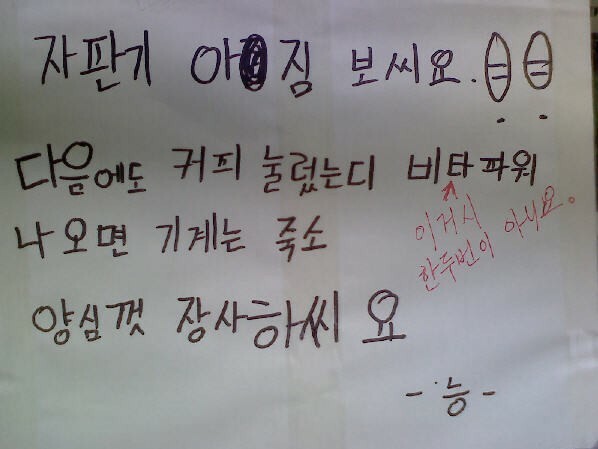 자판기 아짐 보씨요.!!
다음에도 커피 눌렀는디 비타파워
이거시
한두번이 아니요.
나오면 기계는 죽소
양심껏 장사하씨요
-능-